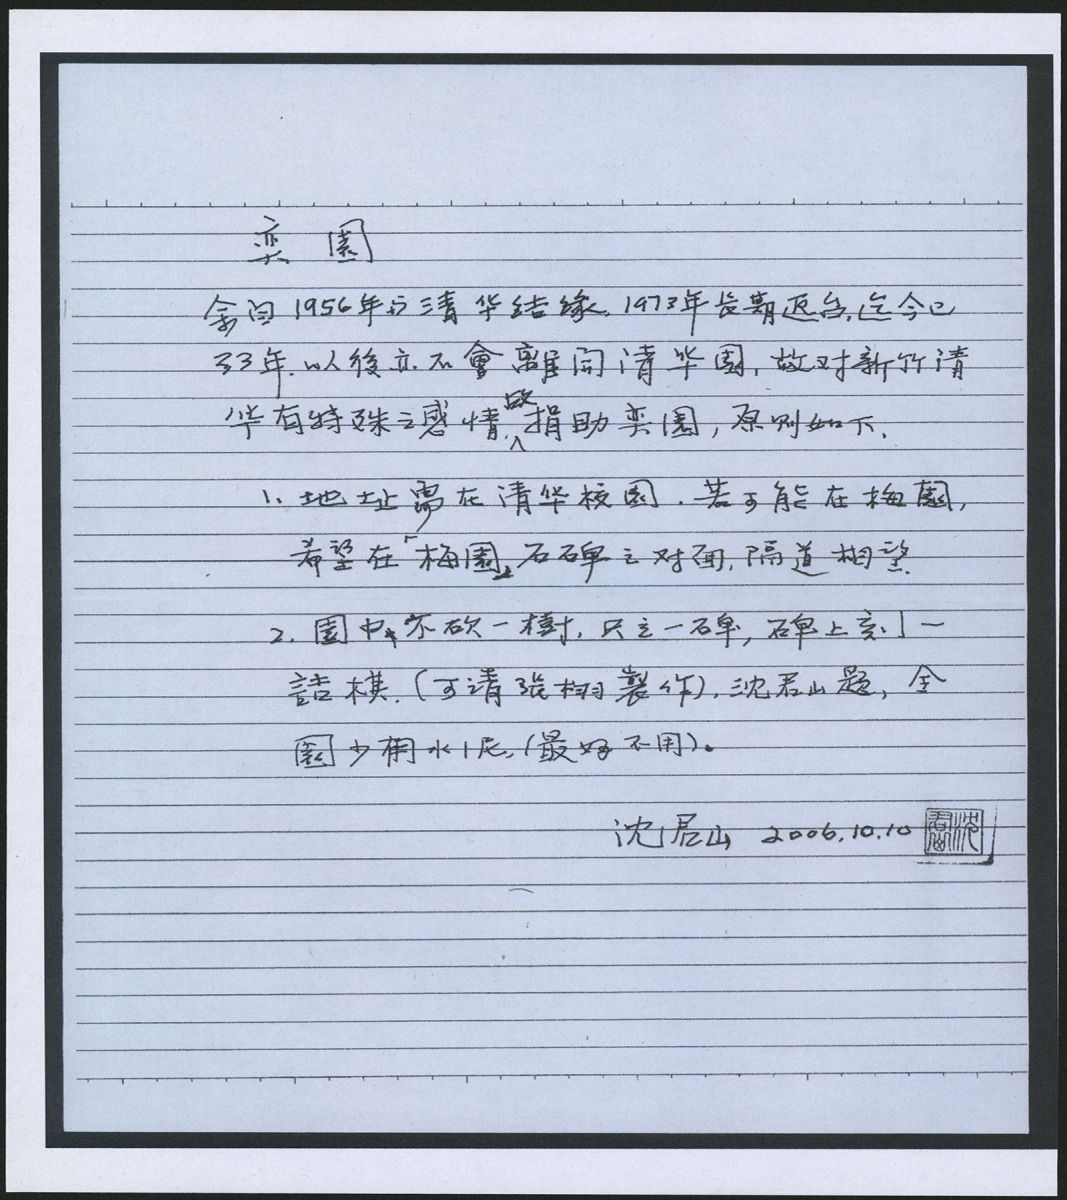 奕園
余自1956年与清华结缘,1973年長期返台,迄今已
33年,以後亦不會離開清华園,故对新竹清
华有特殊之感情,故捐助奕園,原則如下,
1. 地址需在清华校園,若可能在梅園,
希望在「梅園」石碑之对面,隔道相望
2. 園中不砍一樹,只立一碑,碑上刻一
詰棋,(可請張栩製作),沈君山題,全
園少用水泥,(最好不用)。
沈君山 2006.10.10